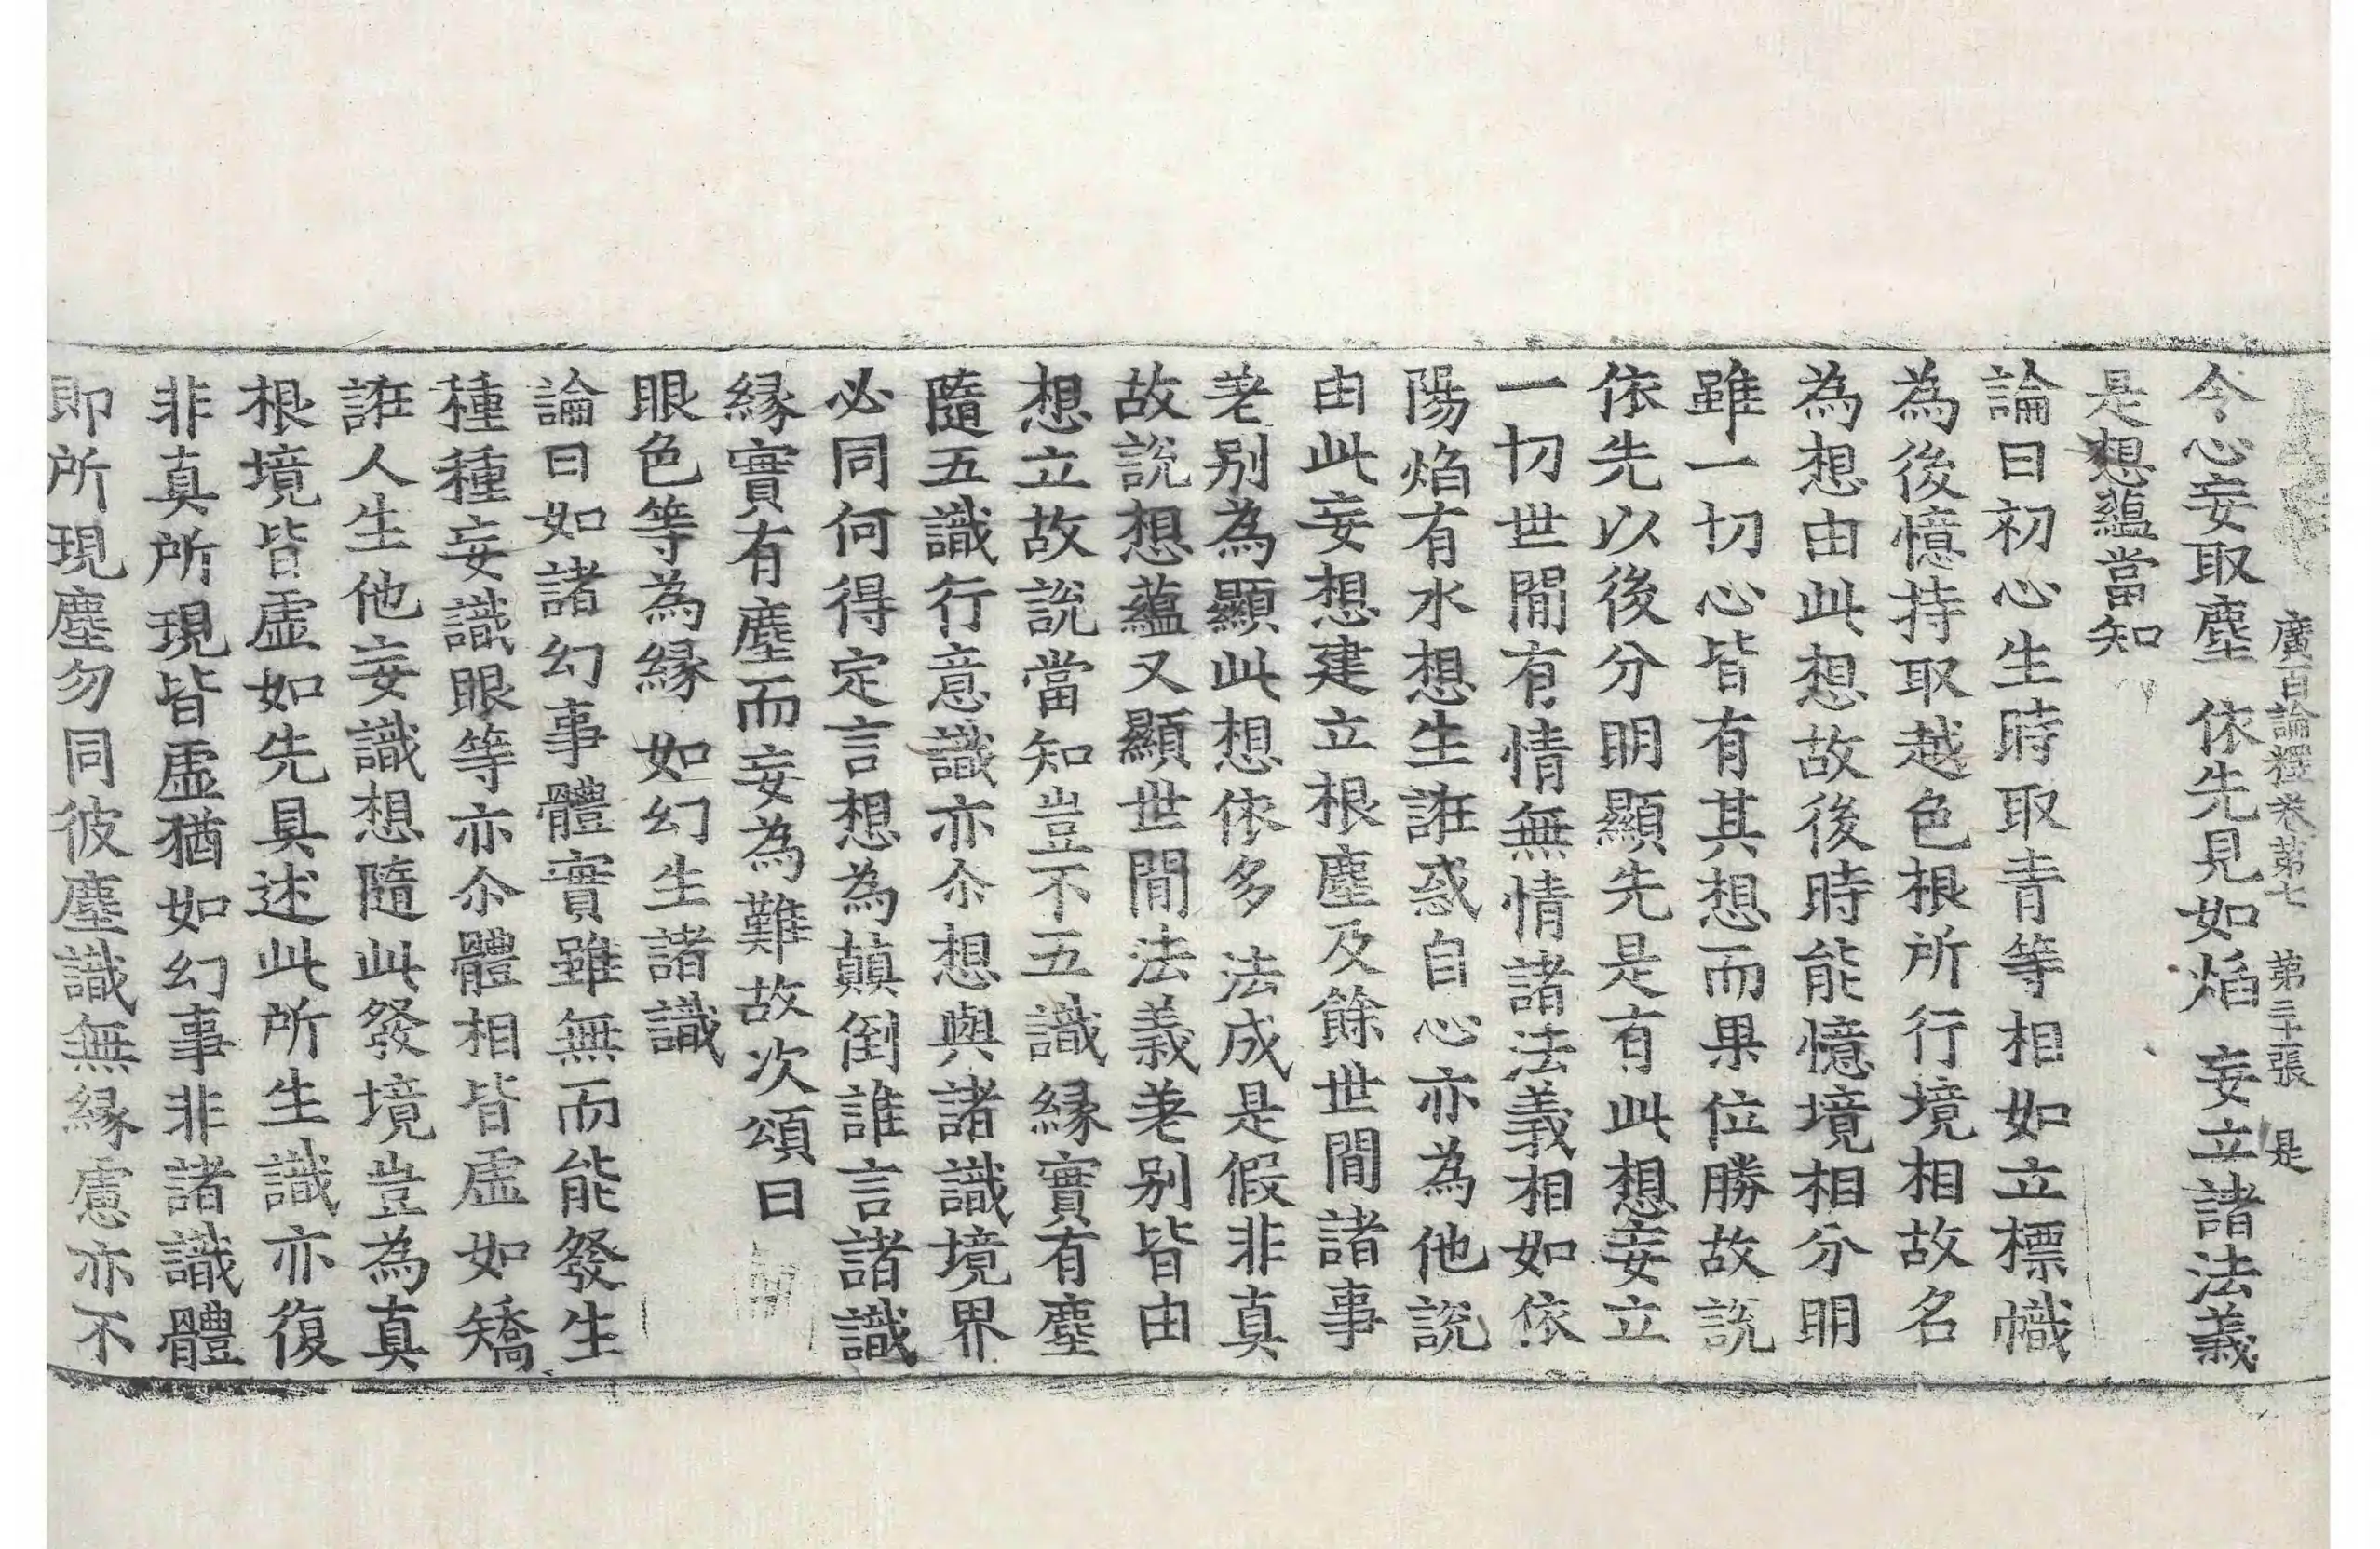 廣百論釋卷第七 第二十張 是
令心妄取塵 依先見如焰 妄立諸法義
是想蘊當知
論曰初心生時取青等相如立標幟
為後憶持取越色根所行境相故名
為想由此想故後時能憶境相分明
雖一切心皆有其想而果位勝故說
依先以後分明顯先是有此想妄立
一切世間有情無情諸法義相如依
陽焰有水想生誑惑自心亦為他說
由此妄想建立根塵及餘世間諸事
差別為顯此想依多法成是假非真
故說想蘊又顯世間法義差別皆由
想立故說當知豈不五識緣實有塵
隨五識行意識亦尒想與諸識境界
必同何得定言想為顛倒誰言諸識
緣實有塵而妄為難故次頌曰
眼色等為緣 如幻生諸識
論曰如諸幻事體實雖無而能發生
種種妄識眼等亦尒體相皆虛如矯
誑人生他妄識想隨此發境豈為真
根境皆虛如先具述此所生識亦復
非真所現皆虛猶如幻事非諸識體
即所現塵勿同彼塵識無緣慮亦不